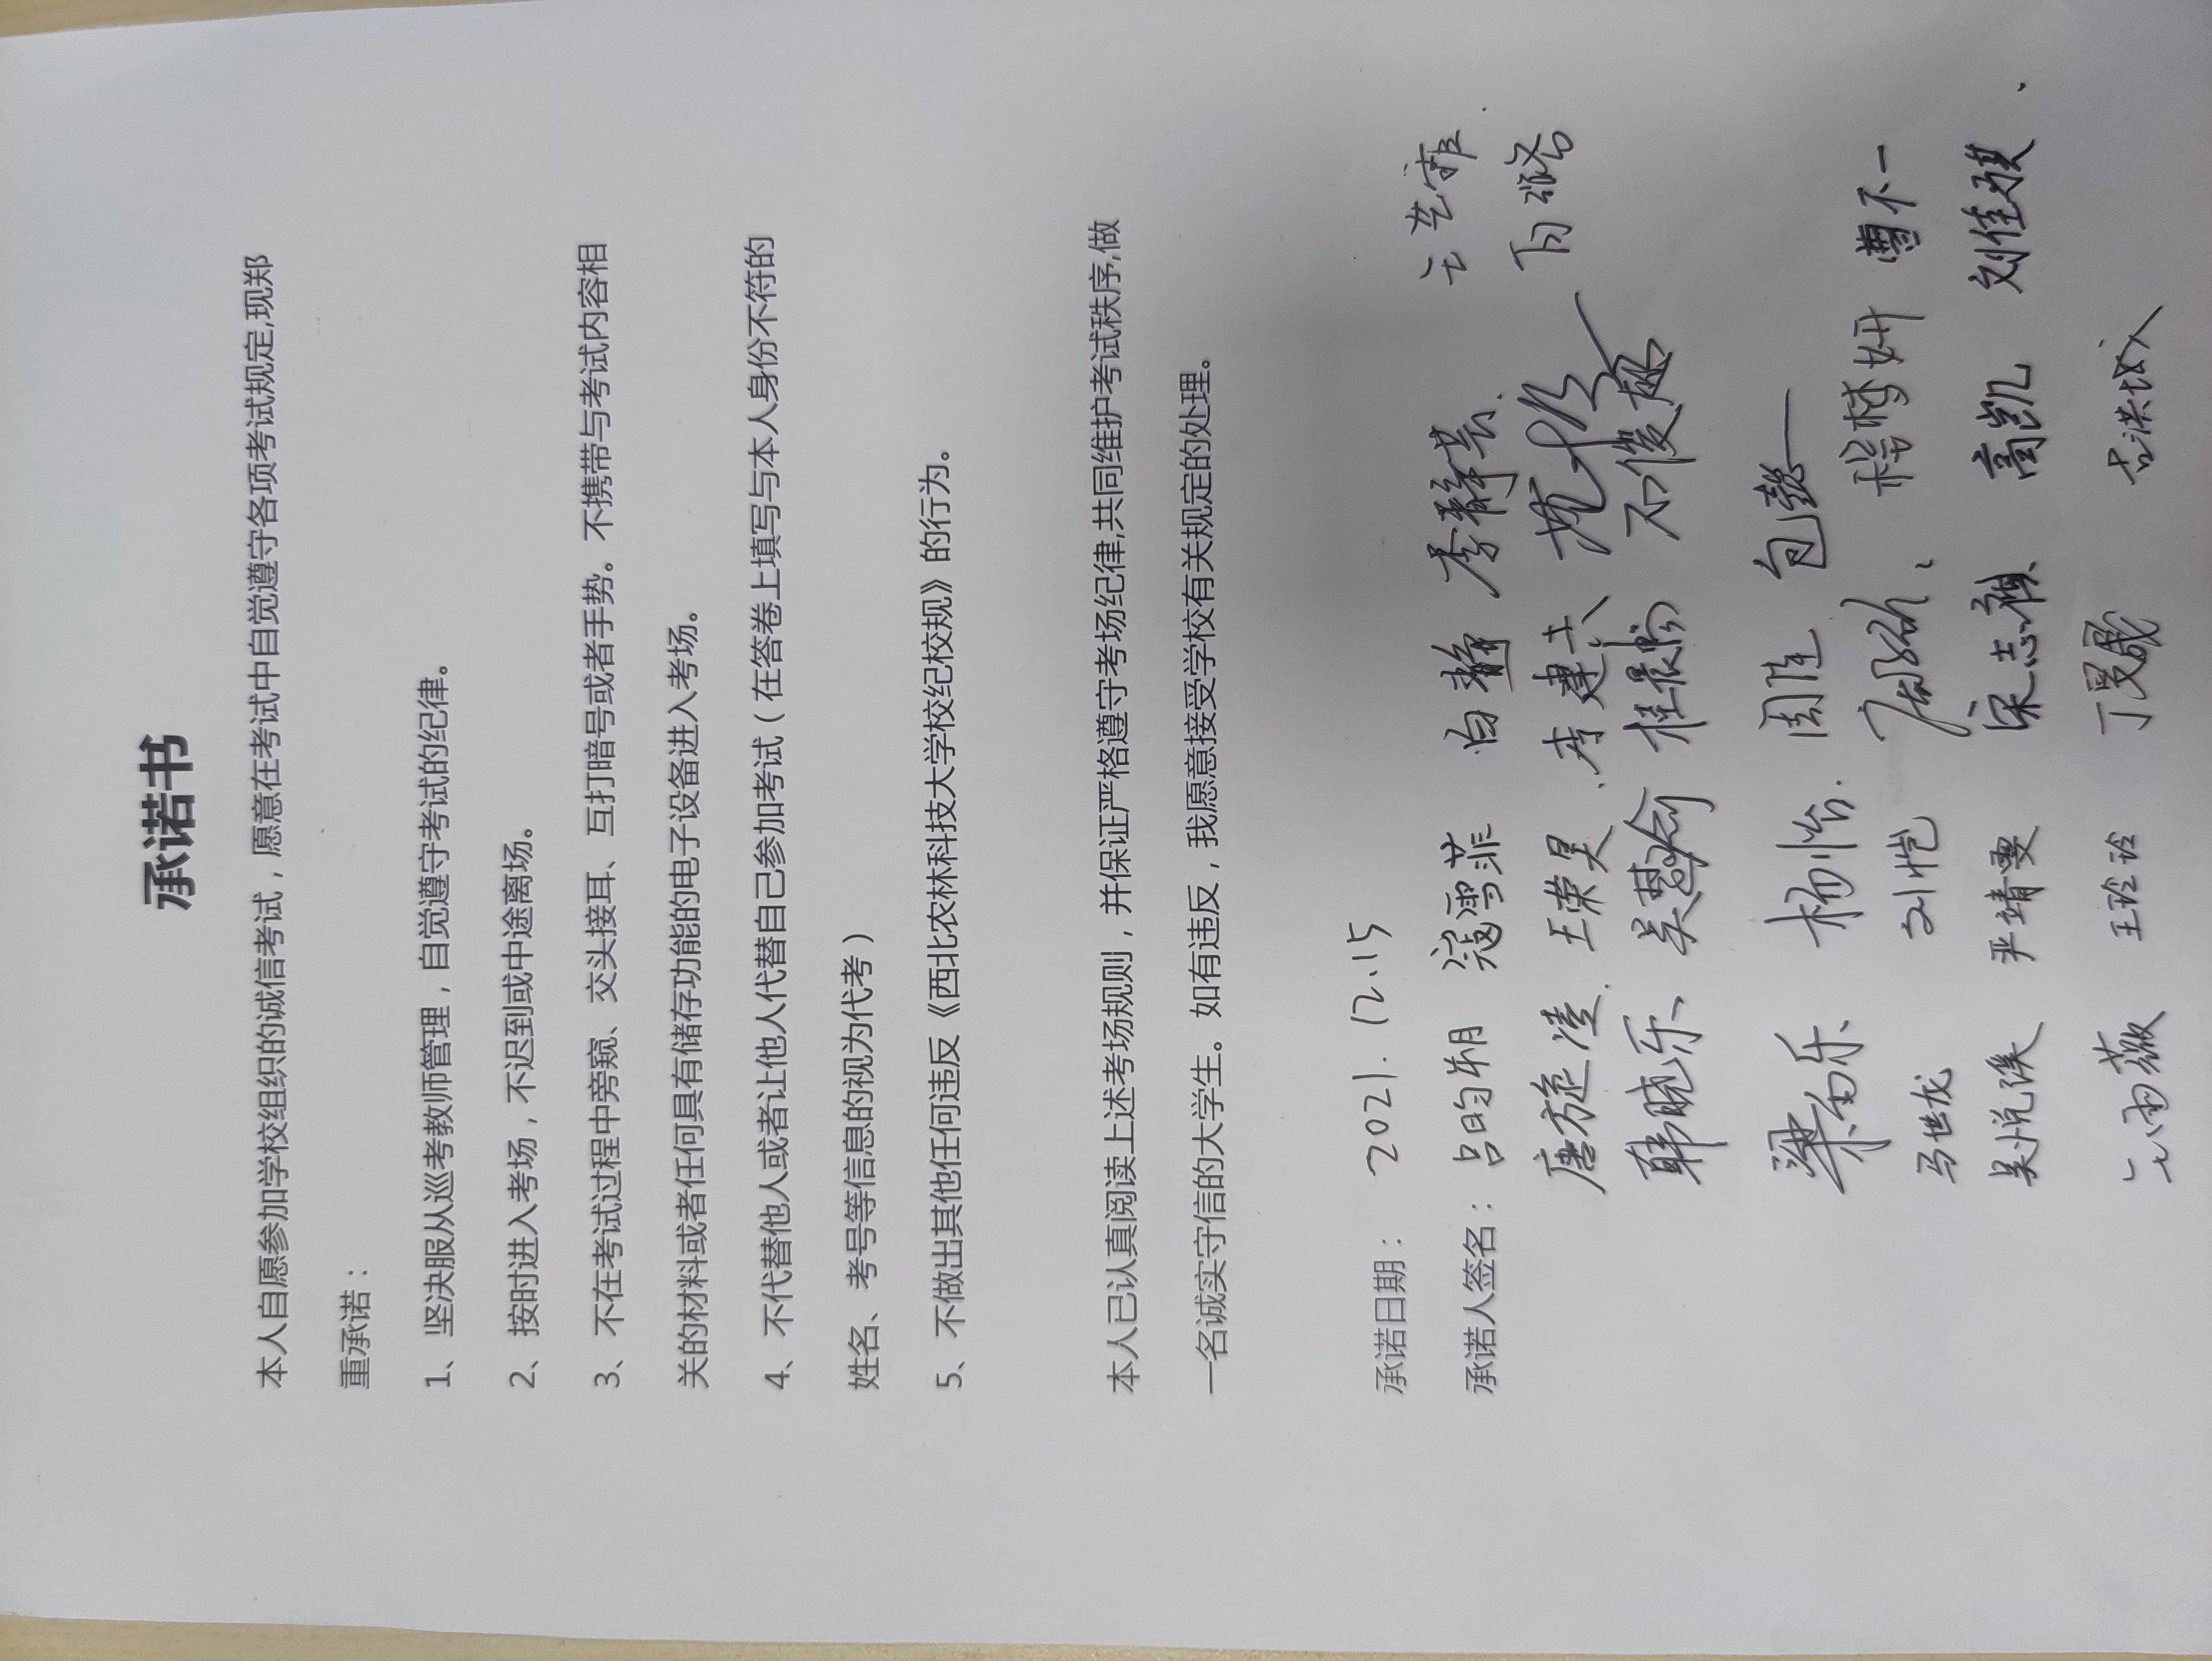 承诺书
本人自愿参加学校组织的诚信考试，愿意在考试中自觉遵守各项考试规定,现郑
重承诺：
1、坚决服从巡考教师管理，自觉遵守考试的纪律。
2、按时进入考场，不迟到或中途离场。
3、不在考试过程中旁窥、交头接耳、互打暗号或者手势。不携带与考试内容相
关的材料或者任何具有储存功能的电子设备进入考场。
4、不代替他人或者让他人代替自己参加考试（在答卷上填写与本人身份不符的
姓名、考号等信息的视为代考）
5、不做出其他任何违反《西北农林科技大学校纪校规》的行为。
本人已认真阅读上述考场规则，并保证严格遵守考场纪律,共同维护考试秩序,做
一名诚实守信的大学生。如有违反，我愿意接受学校有关规定的处理。
承诺日期： 2021.12.15
承诺人签名： 吕昀朔 寇雪菲 白静 李静芸
唐旋凌 王荣昊 李建兵
韩晓乐 吴慧俞
梁雨乐 杨怡 周佳 包懿
马世龙 刘恺 嵇梦妍 曹不一
吴悦溪 严靖雯 宋志颖 高凯 刘佳琪
王玲玲 丁旻晟 古洪斌